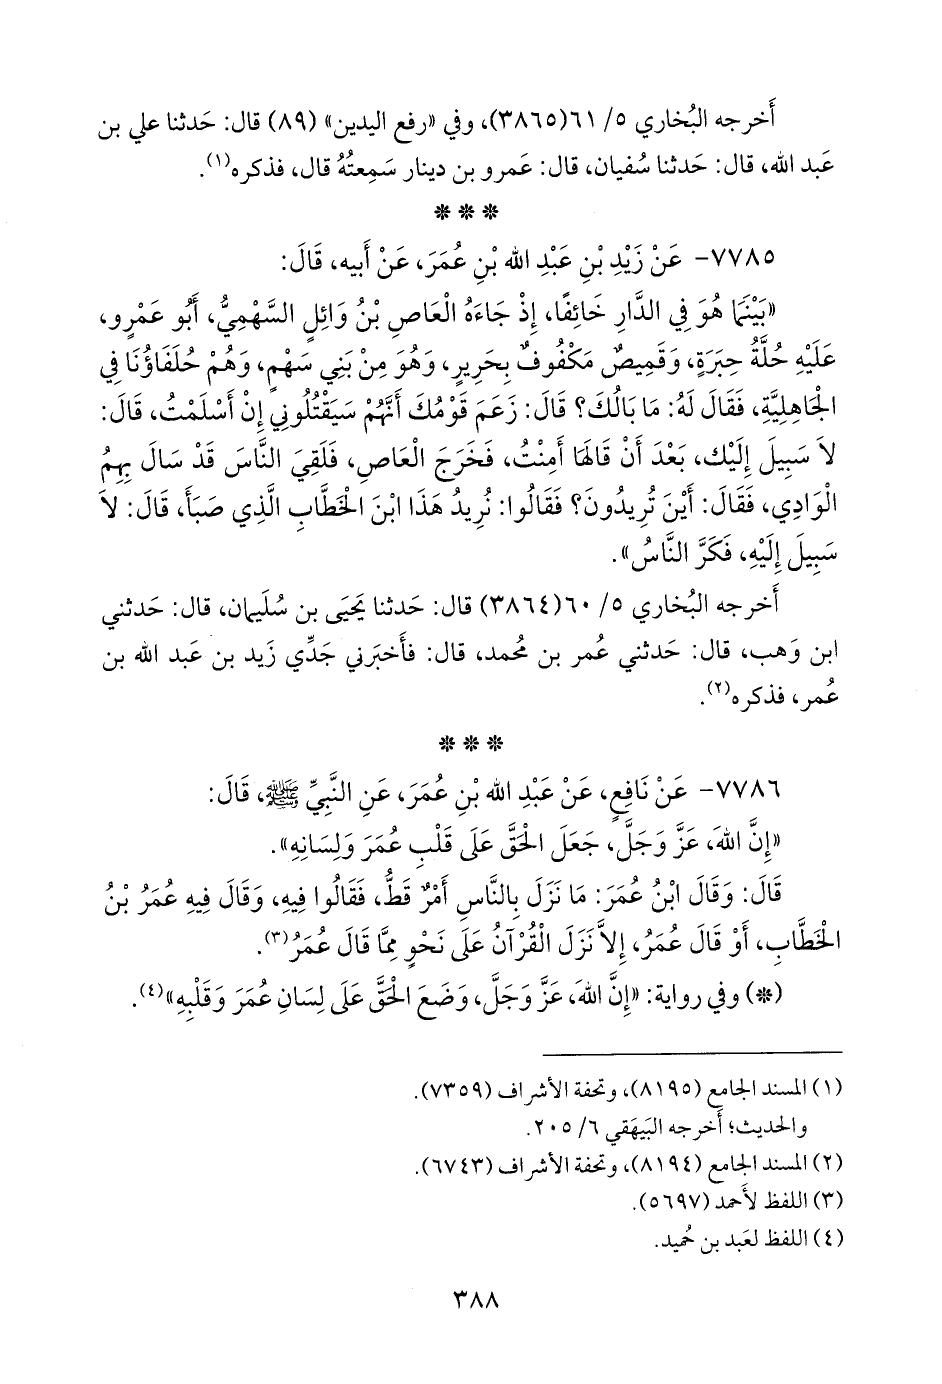 أَخرجه البُخاري ٥/ ٦١(٣٨٦٥)، وفي «رفع اليدين» (٨٩) قال: حَدثنا علي بن
عَبد الله، قال: حَدثنا سُفيان، قال: عَمرو بن دينار سَمِعتُهُ قال، فذكره(١).
❊ ❊ ❊
٧٧٨٥- عَنْ زَيْدِ بْنِ عَبْدِ الله بْنِ عُمَرَ، عَنْ أَبيه، قَالَ:
«بَيْنَمَا هُوَ فِي الدَّارِ خَائِفًا، إِذْ جَاءَهُ الْعَاصِ بْنُ وَائِلٍ السَّهْمِيُّ، أَبُو عَمْرٍو،
عَلَيْهِ حُلَّةُ حِبَرَةٍ، وَقَمِيصٌ مَكْفُوفٌ بِحَرِيرٍ، وَهُوَ مِنْ بَنِي سَهْمٍ، وَهُمْ حُلَفَاؤُنَا فِي
الْجَاهِلِيَّةِ، فَقَالَ لَهُ: مَا بَالُكَ؟ قَالَ: زَعَمَ قَوْمُكَ أَنَّهُمْ سَيَقْتُلُونِي إِنْ أَسْلَمْتُ، قَالَ:
لاَ سَبِيلَ إِلَيْكَ، بَعْدَ أَنْ قَالهَا أَمِنْتُ، فَخَرَجَ الْعَاصِ، فَلَقِيَ النَّاسَ قَدْ سَالَ بِهِمُ
الْوَادِي، فَقَالَ: أَيْنَ تُرِيدُونَ؟ فَقَالُوا: نُرِيدُ هَذَا ابْنَ الْخَطَّابِ الَّذِي صَبَأَ، قَالَ: لاَ
سَبِيلَ إِلَيْهِ، فَكَرَّ النَّاسُ».
أَخرجه البُخاري ٥/ ٦٠(٣٨٦٤) قال: حَدثنا يَحيَى بن سُليمان، قال: حَدثني
ابن وَهب، قال: حَدثني عُمر بن مُحمد، قال: فأَخبَرني جَدِّي زَيد بن عَبد الله بن
عُمر، فذكره(٢).
❊ ❊ ❊
٧٧٨٦- عَنْ نَافِعٍ، عَنْ عَبْدِ الله بْنِ عُمَرَ، عَنِ النَّبِيِّ ﷺ، قَالَ:
«إِنَّ اللهَ، عَزَّ وَجَلَّ، جَعَلَ الْحَقَّ عَلَى قَلْبِ عُمَرَ وَلِسَانِهِ».
قَالَ: وَقَالَ ابْنُ عُمَرَ: مَا نَزَلَ بِالنَّاسِ أَمْرٌ قَطُّ، فَقَالُوا فِيهِ، وَقَالَ فِيهِ عُمَرُ بْنُ
الْخَطَّابِ، أَوْ قَالَ عُمَرُ، إِلاَّ نَزَلَ الْقُرْآنُ عَلَى نَحْوٍ مِمَّا قَالَ عُمَرُ(٣).
(❊) وفي رواية: «إِنَّ اللهَ، عَزَّ وَجَلَّ، وَضَعَ الْحَقَّ عَلَى لِسَانِ عُمَرَ وَقَلْبِهِ»(٤).
(١) المسند الجامع (٨١٩٥)، وتحفة الأشراف (٧٣٥٩).
والحديث؛ أَخرجه البَيهَقي ٦/ ٢٠٥.
(٢) المسند الجامع (٨١٩٤)، وتحفة الأشراف (٦٧٤٣).
(٣) اللفظ لأَحمد (٥٦٩٧).
(٤) اللفظ لعَبد بن حُميد.
٣٨٨